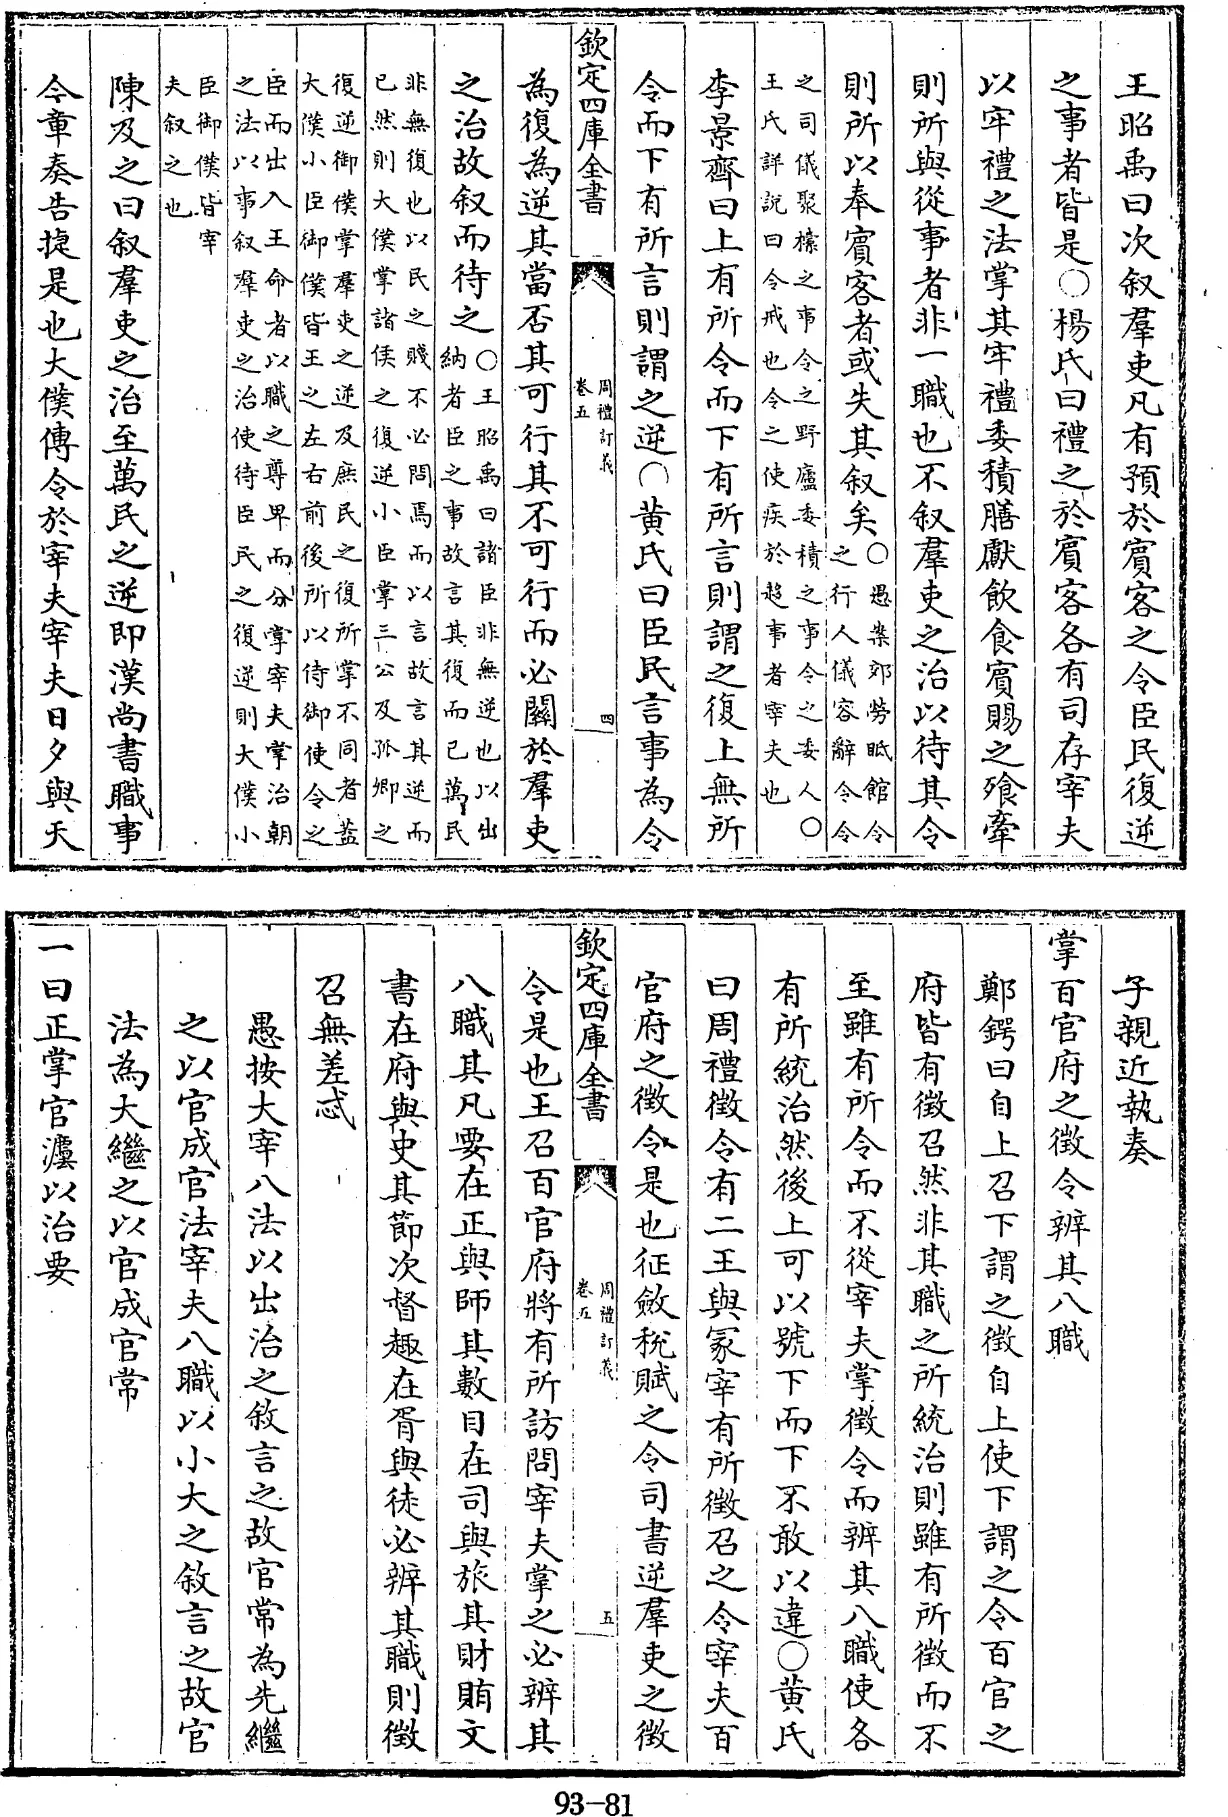 王昭禹曰次叙羣吏凡有預於賓客之令臣民復逆
之事者皆是○楊氏曰禮之於賓客各有司存宰夫
以牢禮之法掌其牢禮委積膳獻飲食賓賜之飱牽
則所與從事者非一職也不叙羣吏之治以待其令
則所以奉賓客者或失其叙矣○愚案郊勞眂館令
之行人儀容辭令令
之司儀聚㯓之事令之野廬委積之事令之委人○
王氏詳說曰令戒也令之使疾於趍事者宰夫也
李景齊曰上有所令而下有所言則謂之復上無所
令而下有所言則謂之逆○黄氏曰臣民言事為令
欽定四庫全書
周禮訂義
卷五
四
為復為逆其當否其可行其不可行而必關於羣吏
之治故叙而待之○王昭禹曰諸臣非無逆也以出
納者臣之事故言其復而已萬民
非無復也以民之賤不必問焉而以言故言其逆而
已然則大僕掌諸侯之復逆小臣掌三公及孤卿之
復逆御僕掌羣吏之逆及庶民之復所掌不同者蓋
大僕小臣御僕皆王之左右前後所以待御使令之
臣而出入王命者以職之尊卑而分掌宰夫掌治朝
之法以事叙羣吏之治使待臣民之復逆則大僕小
臣御僕皆宰
夫叙之也
陳及之曰叙羣吏之治至萬民之逆即漢尚書職事
今章奏告捷是也大僕傳令於宰夫宰夫日夕與天
子親近執奏
掌百官府之徵令辨其八職
鄭鍔曰自上召下謂之徵自上使下謂之令百官之
府皆有徵召然非其職之所統治則雖有所徵而不
至雖有所令而不從宰夫掌徵令而辨其八職使各
有所統治然後上可以號下而下不敢以違○黄氏
曰周禮徵令有二王與冡宰有所徵召之令宰夫百
官府之徵令是也征斂稅賦之令司書逆羣吏之徵
欽定四庫全書
周禮訂義
卷五
五
令是也王召百官府將有所訪問宰夫掌之必辨其
八職其凡要在正與師其數目在司與旅其財賄文
書在府與史其節次督趣在胥與徒必辨其職則徵
召無差忒
愚按大宰八法以出治之敘言之故官常為先繼
之以官成官法宰夫八職以小大之敘言之故官
法為大繼之以官成官常
一曰正掌官灋以治要
93-81